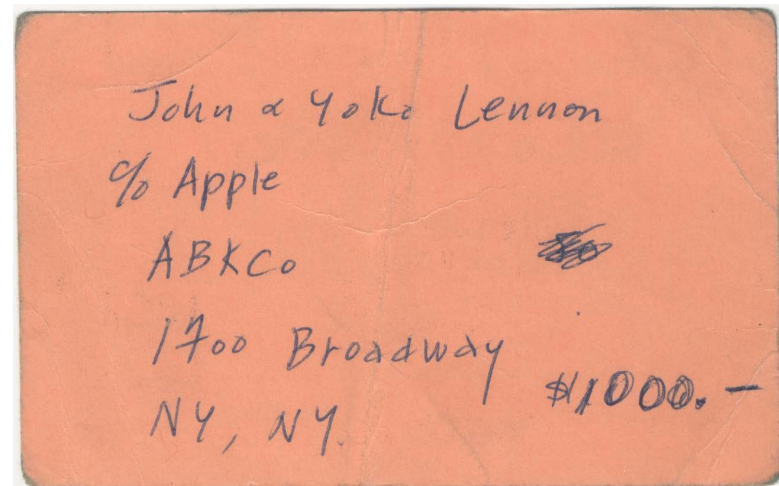 John & Yoko Lennon
c/o Apple
ABKCo
1700 Broadway
NY, NY.
$1000.—